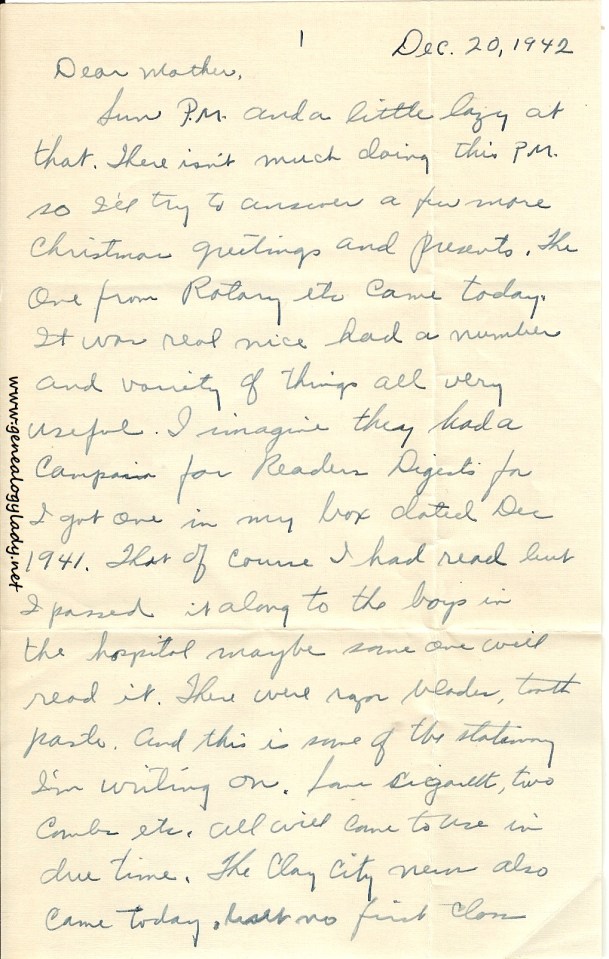 1
Dec. 20, 1942
Dear Mother,
Sun P.M. and a little lazy at
that. There isn't much doing this P.M.
so I'll try to answer a few more
Christmas greetings and presents. The
One from Rotary etc came today.
It was real nice had a number
and variety of things all very
useful. I imagine they had a
Campain for Readers Digests for
I got one in my box dated Dec
1941. That of course I had read but
I passed it along to the boys in
the hospital maybe some one will
read it. There were razor blades, tooth
paste. And this is some of the stationary
I'm writing on. Some cigarett, two
Combs etc. all will come to use in
due time. The Clay City news also
Came today, but no first class
www.genealogylady.net